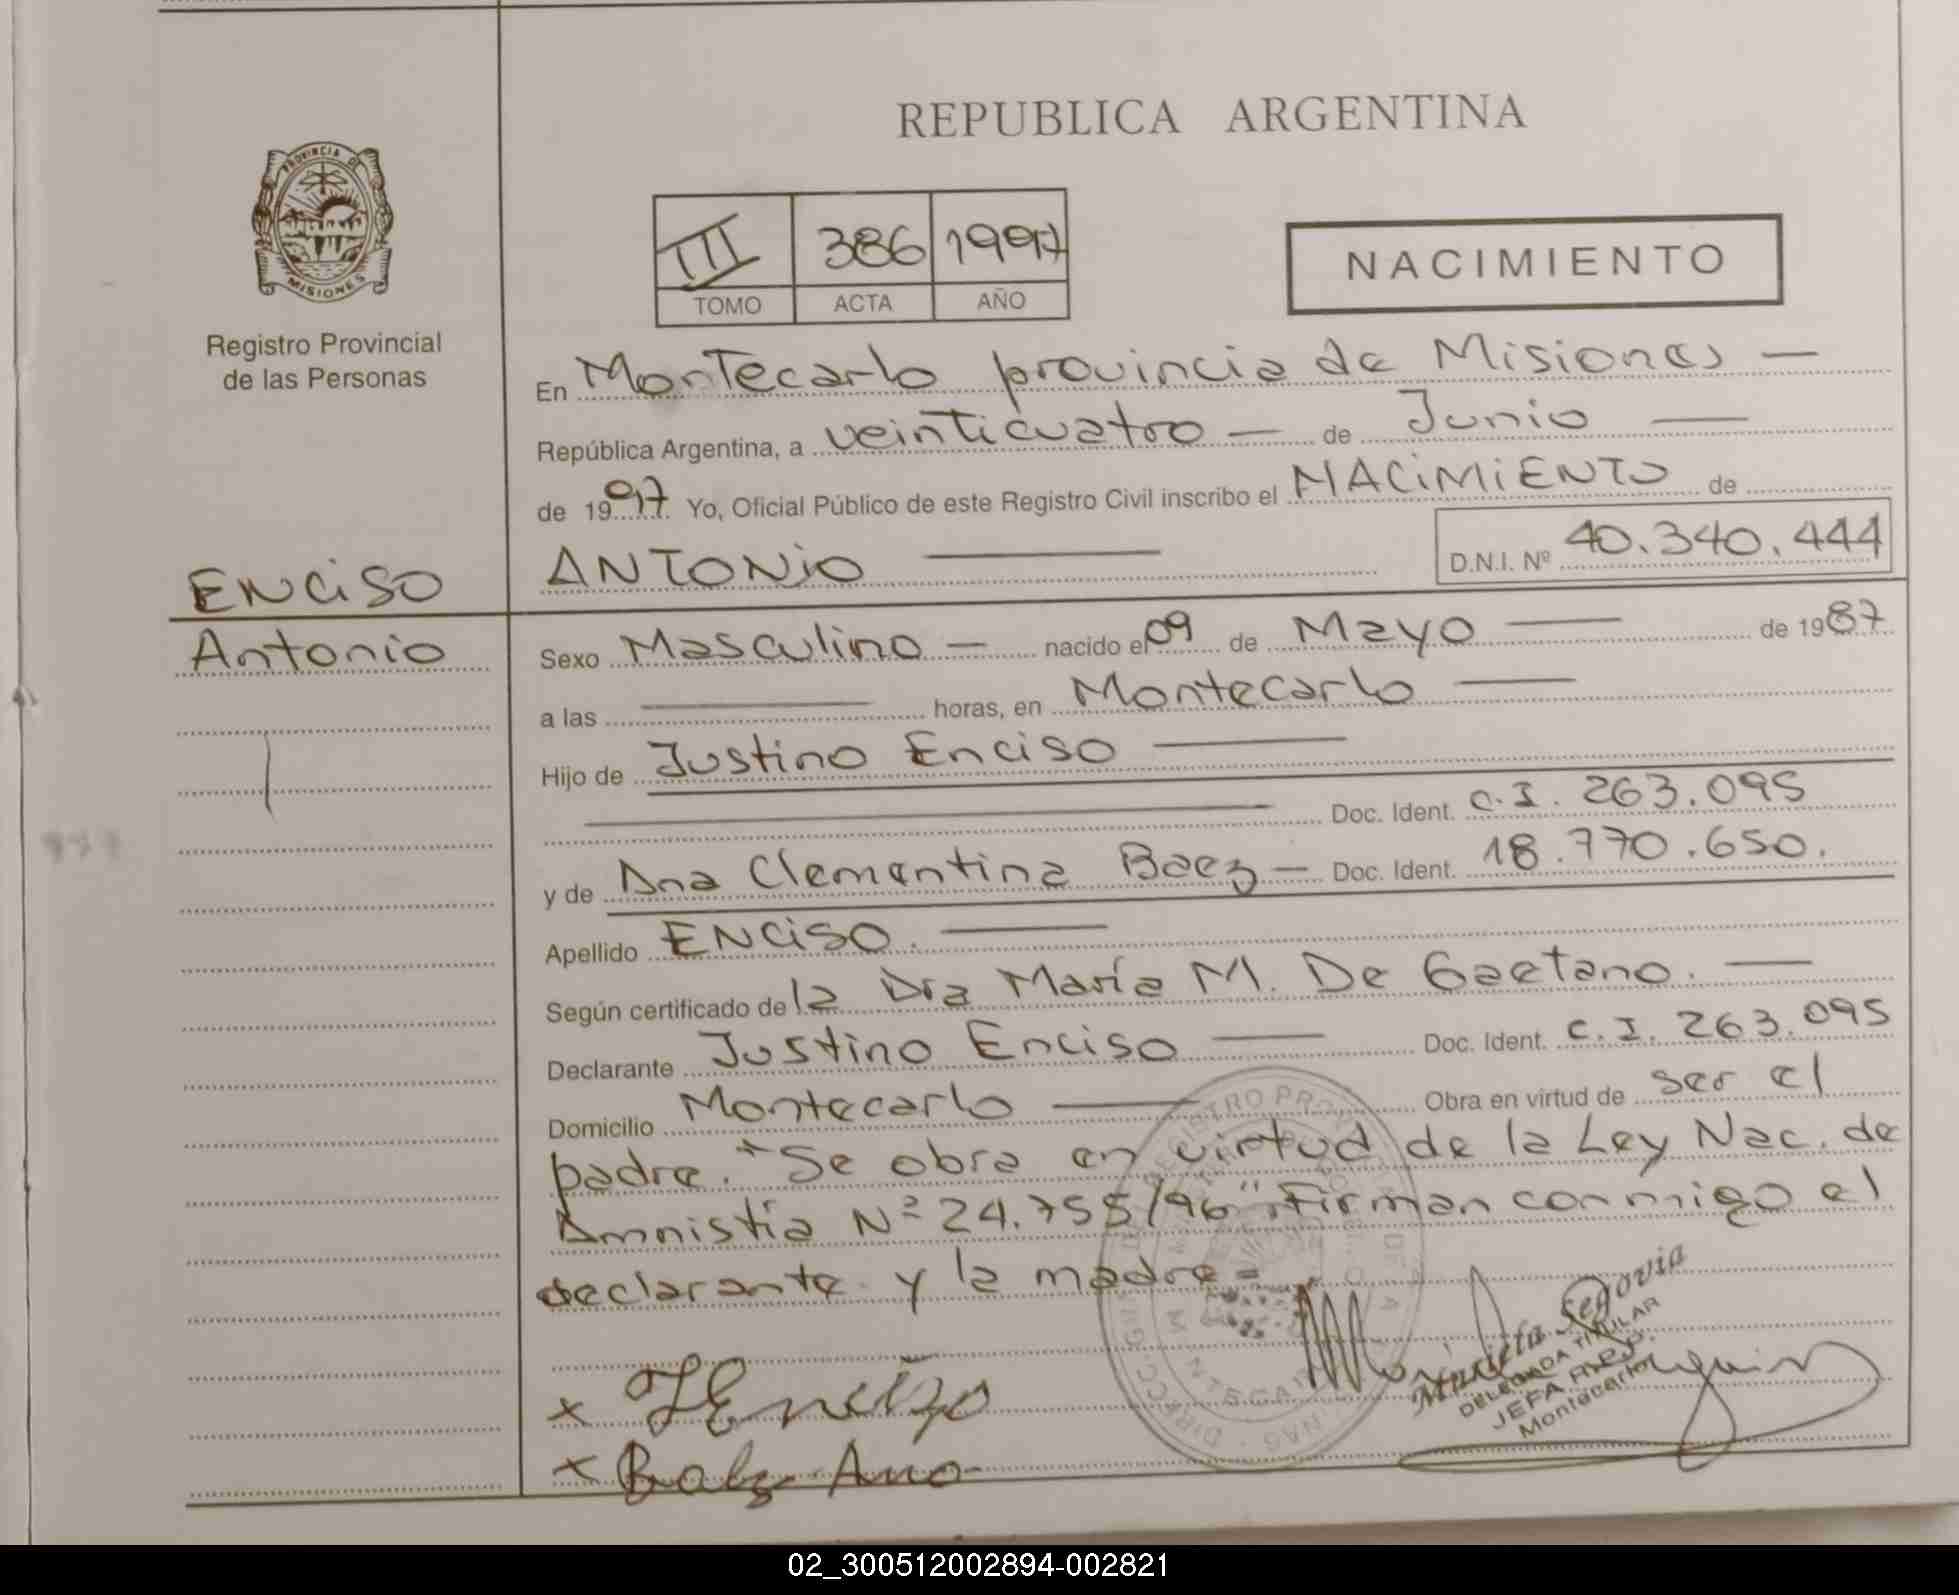 REPUBLICA ARGENTINA
PROVINCIA DE
MISIONES
Registro Provincial
de las Personas
III 386 1997
TOMO ACTA AÑO
NACIMIENTO
En Montecarlo provincia de Misiones —
República Argentina, a veinticuatro — de Junio —
de 1997 Yo, Oficial Público de este Registro Civil inscribo el NACIMIENTO de
ANTONIO — D.N.I. Nº 40.340.444
ENCISO
Antonio
Sexo Masculino — nacido el 09 de Mayo — de 1987
a las — horas, en Montecarlo —
Hijo de Justino Enciso —
— Doc. Ident. C.I. 263.095
y de Ana Clementina Baez — Doc. Ident. 18.770.650.
Apellido ENCISO. —
Según certificado de la Dra María M. De Gaetano. —
Declarante Justino Enciso — Doc. Ident. C.I. 263.095
Domicilio Montecarlo — Obra en virtud de ser el
padre. "Se obra en virtud de la Ley Nac. de
Amnistía Nº 24.755/96" Firman conmigo el
declarante y la madre =
x J Enciso
x Baez Ana
Segovia
DELEGADA TITULAR
JEFA
Montecarlo
02_300512002894-002821